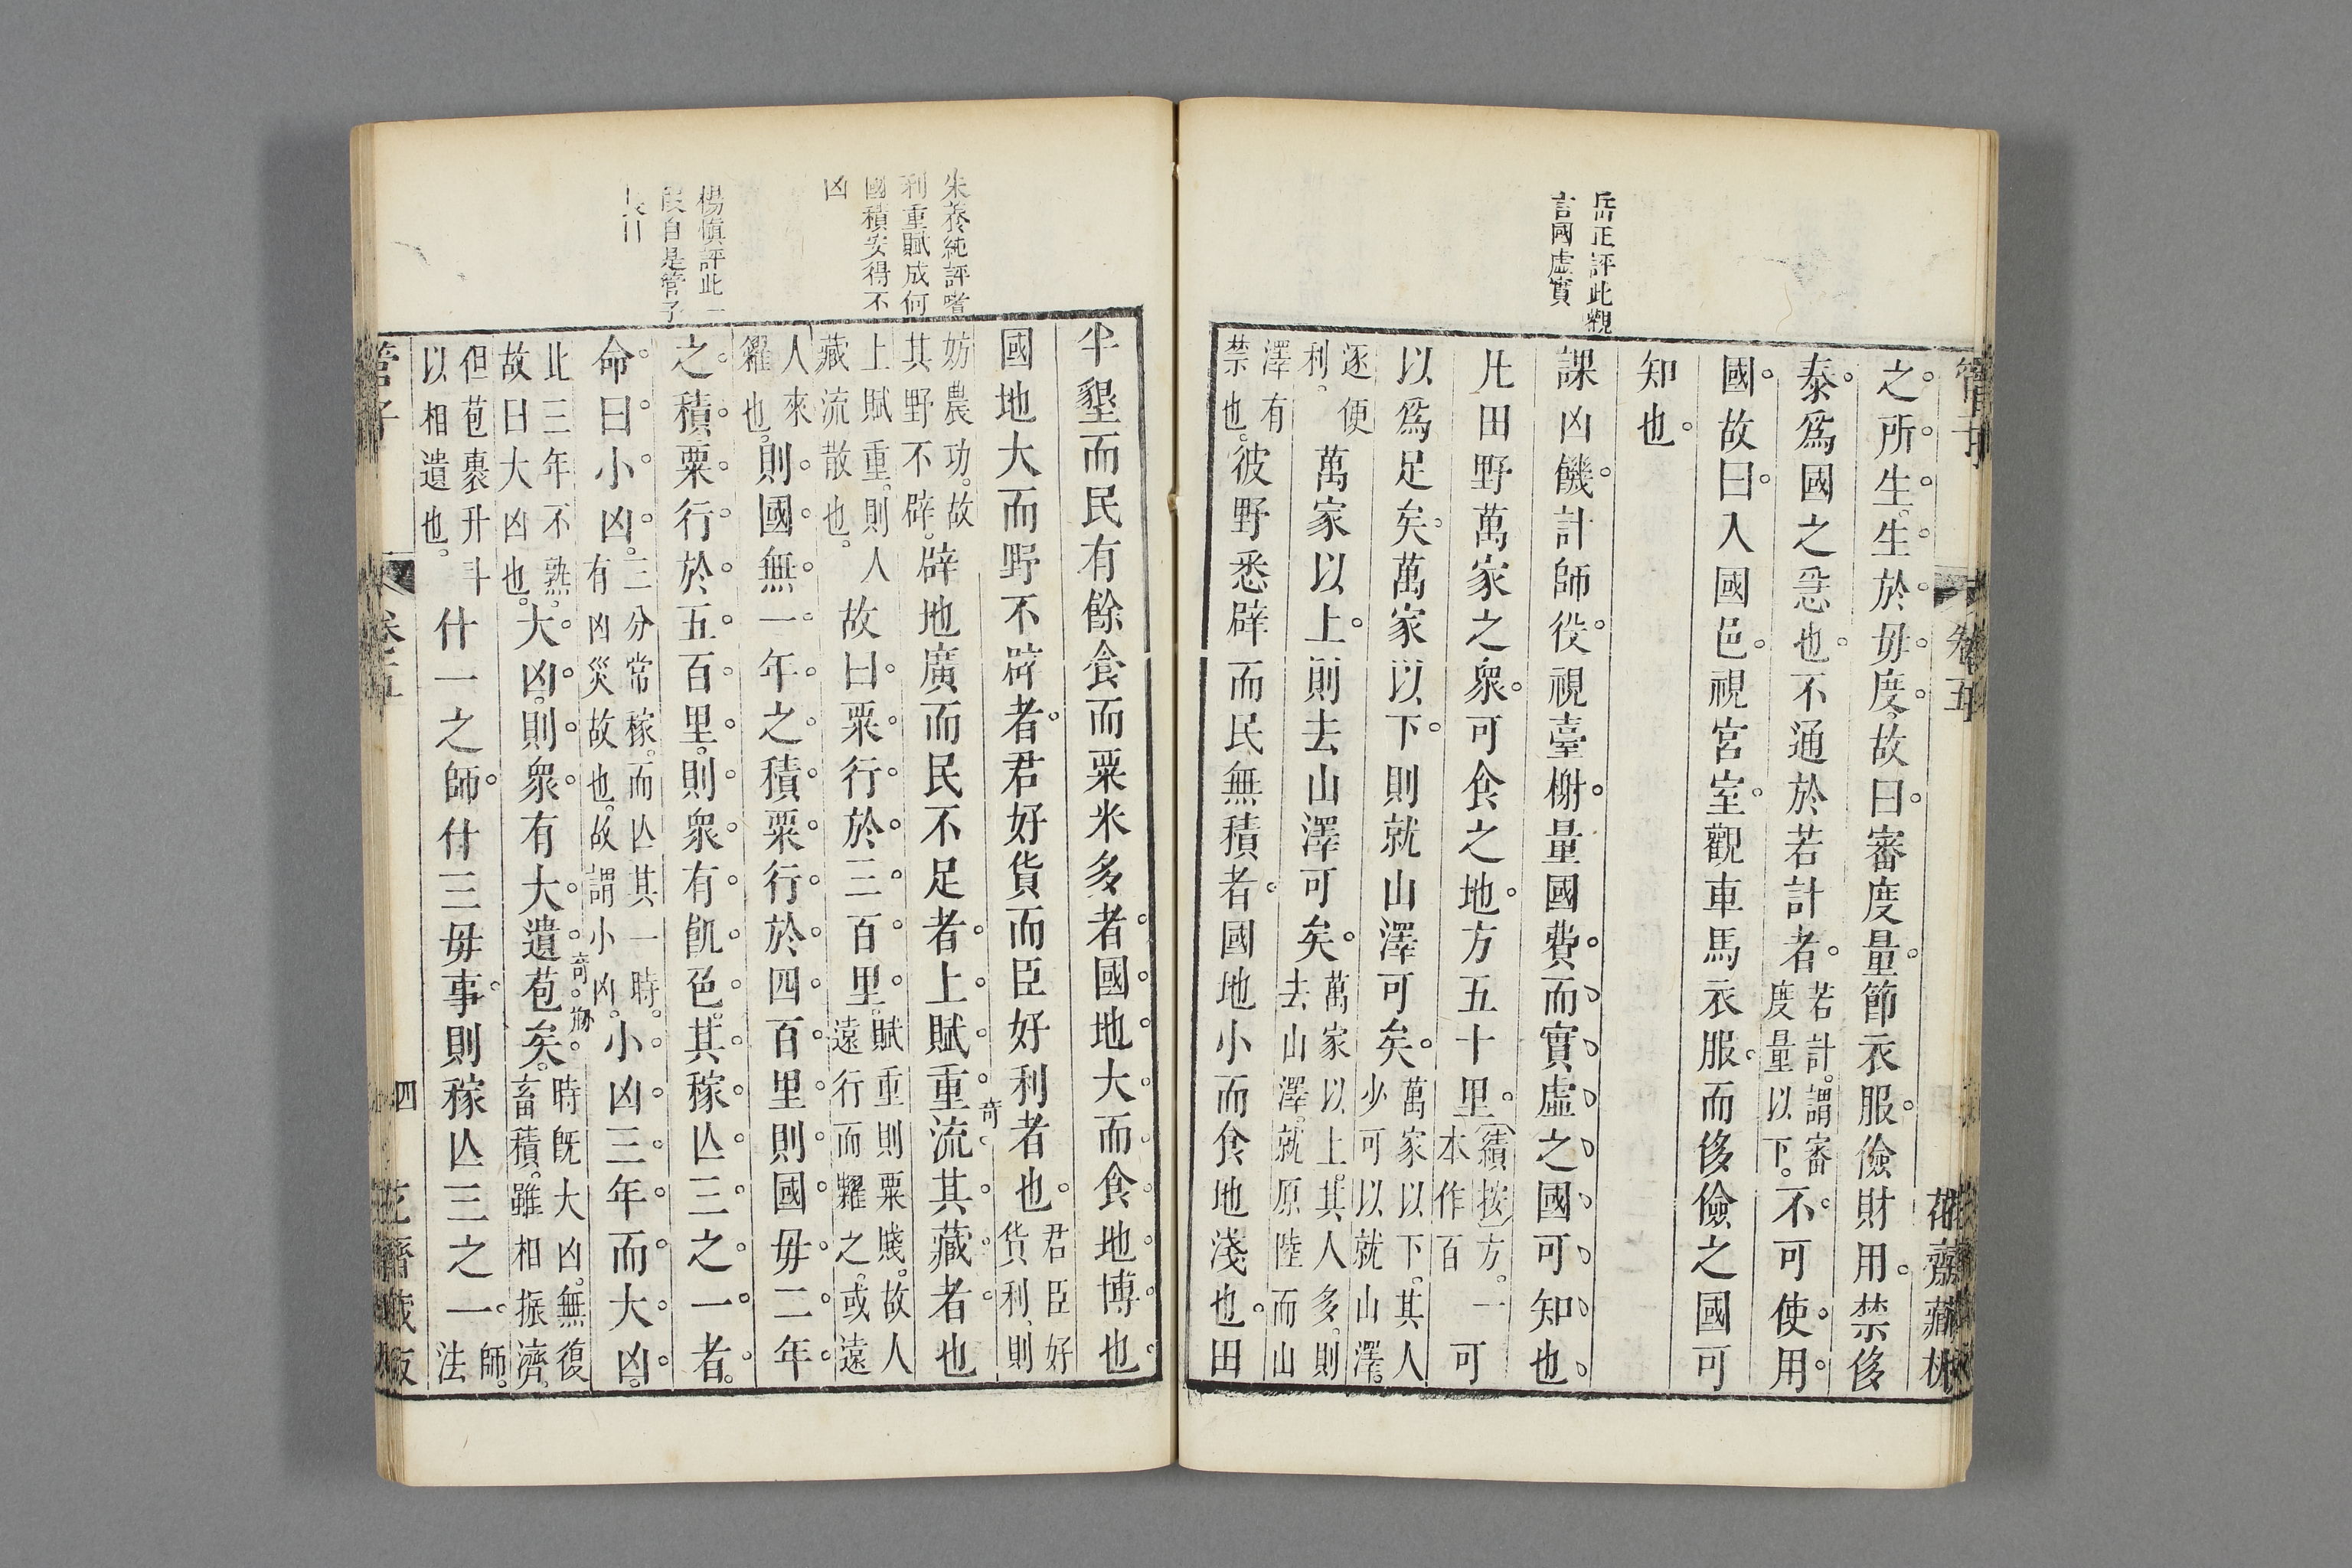 岳正評此觀
言國虛實
管子
卷五
花齋藏板
之所生生於毋度故曰審度量節衣服儉財用禁侈
泰爲國之急也不通於若計者若計謂審度量以下不可使用
國故曰入國邑視宮室觀車馬衣服而侈儉之國可
知也
課凶饑計師役視臺榭量國費而實虛之國可知也
凡田野萬家之衆可食之地方五十里績按方一本作百可
以爲足矣萬家以下則就山澤可矣萬家以下其人少可以就山澤
逐便利萬家以上則去山澤可矣萬家以上其人多則去山澤就原陸而山
澤有禁也彼野悉辟而民無積者國地小而食地淺也田
朱養純評嗜
利重賦成何
國積安得不
凶
楊慎評此一
段自是管子
半墾而民有餘食而粟米多者國地大而食地博也
國地大而野不辟者君好貨而臣好利者也君臣好貨利則
妨農功故其野不辟辟地廣而民不足者上賦重流其藏者也
奇
上賦重則人藏流散也故曰粟行於三百里賦重則粟賤故人遠行而糶之或遠
人來糴也則國無一年之積粟行於四百里則國毋二年
之積粟行於五百里則衆有飢色其稼亾三之一者
命曰小凶三分常稼而亾其一時有凶災故也故謂小凶小凶三年而大凶
此三年不熟故曰大凶也大凶則衆有大遺苞矣時旣大凶無復畜積雖相振濟
奇
但苞裹升斗以相遺也什一之師什三毋事則稼亾三之一師法
管子
卷五
四
花齋藏板